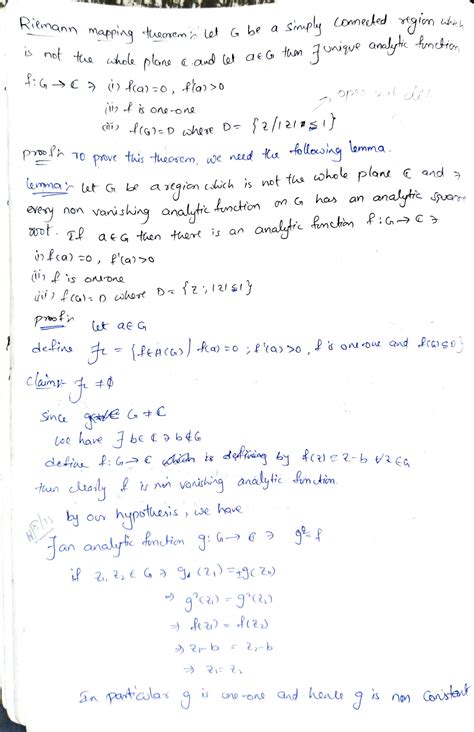 Riemann mapping theorem:- Let G be a simply connected region which
is not the whole plane ℂ and let a∈G then ∃ unique analytic function
f: G → ℂ ∋ (i) f(a)=0, f'(a)>0
(ii) f is one-one
(iii) f(G)=D where D = {z/|z|≤1}
→ open unit disc
proof:- To prove this theorem, we need the following lemma.
Lemma:- Let G be a region which is not the whole plane ℂ and ∋
every non vanishing analytic function on G has an analytic square
root. If a∈G then there is an analytic function f: G→ℂ ∋
i) f(a)=0, f'(a)>0
(ii) f is one-one
iii) f(G)=D where D={z: |z|≤1}
proof:-
Let a∈G
define F = {f∈H(G) | f(a)=0; f'(a)>0, f is one-one and f(G)⊆D}
Claim:- F ≠ ∅
since G ≠ ℂ
we have ∃ b∈ℂ ∋ b∉G
define f: G→ℂ which is defining by f(z)=z-b ∀z∈G
then clearly f is non vanishing analytic function.
by our hypothesis, we have
∃ an analytic function g: G→ℂ ∋ g²=f
if z₁, z₂∈G ∋ g(z₁)=±g(z₂)
⇒ g²(z₁) = g²(z₂)
⇒ f(z₁) = f(z₂)
⇒ z₁-b = z₂-b
⇒ z₁=z₂
In particular g is one-one and hence g is non constant